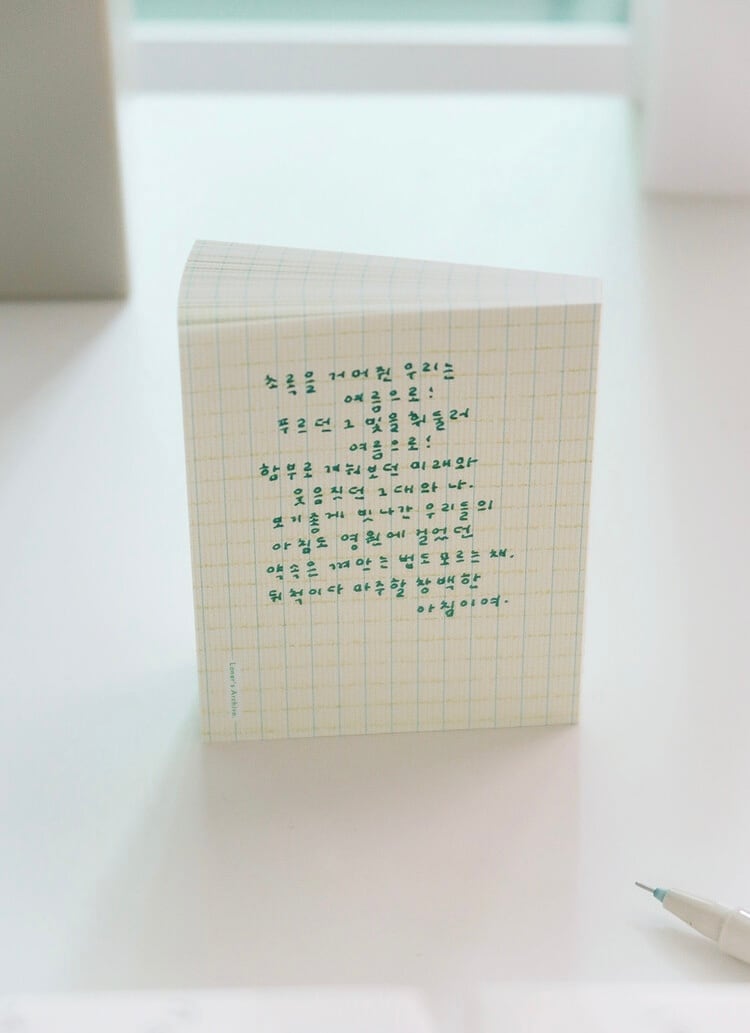 손을 거머쥔 우리는
여름으로!
푸르던 그 빛을 흰 들러
여름으로!
함부로 겁 안 났던 미래와
웃음 짓던 그대와 나.
보기 좋게 빗나간 우리들의
아침도 영원에 걸었던
약속은 껴안는 법도 모르는 채.
도착이다 마주할 창백한
아침이여.
Loner's Archive.